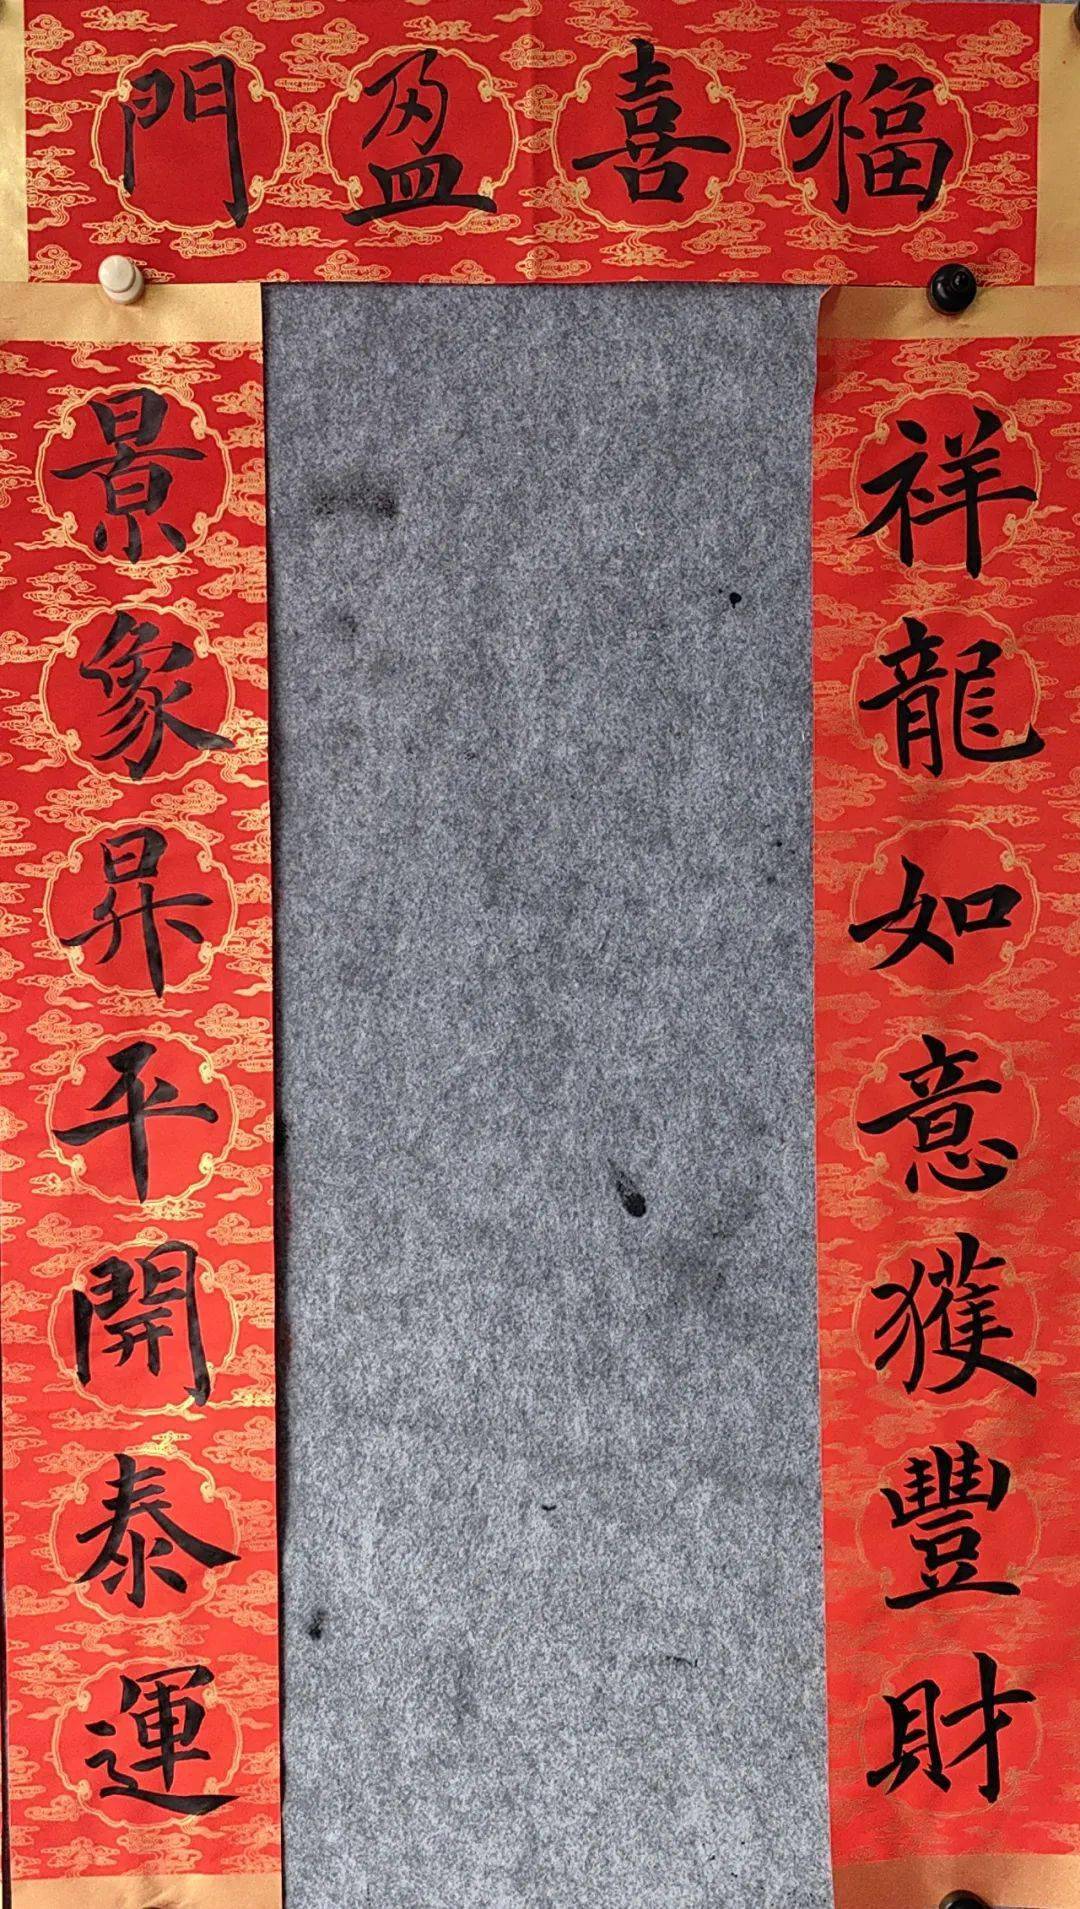 福喜盈門
祥龍如意獲豐財
景象昇平開泰運